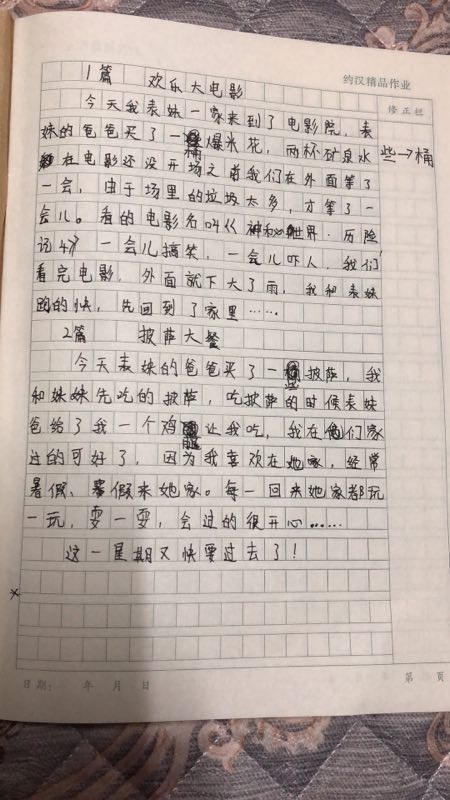 1篇 欢乐大电影
约汉精品作业
修正栏
今天我表妹一家来到了电影院，表
妹的爸爸买了一桶爆米花，两杯矿泉水
些→桶
在电影还没开场之前我们在外面等了
一会，由于场里的垃圾太多，才等了一
会儿。看的电影名叫《神和世界·历险
记4》一会儿搞笑，一会儿吓人，我们
看完电影，外面就下大了雨，我和表妹
跑的快，先回到了家里……
2篇 披萨大餐
今天表妹的爸爸买了一盒披萨，我
和妹妹先吃的披萨，吃披萨的时候表妹
爸给了我一个鸡腿让我吃，我在他们家
过的可好了，因为我喜欢在她家，经常
暑假、寒假来她家。每一回来她家都玩
一玩，耍一耍，会过的很开心……
这一星期又快要过去了！
×
日期： 年 月 日
第 页